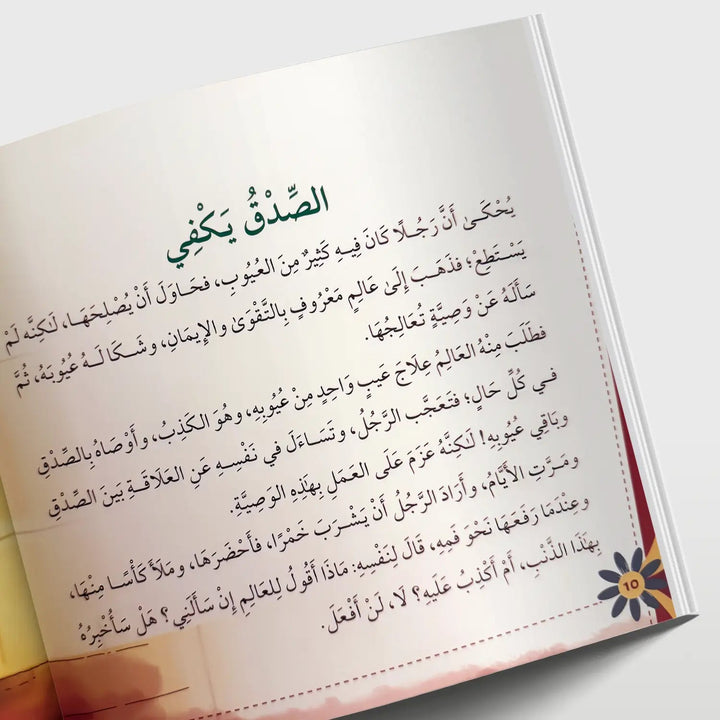 الصِّدْقُ يَكْفِي
يُحْكَىٰ أَنَّ رَجُلًا كَانَ فِيهِ كَثِيرٌ مِنَ العُيُوبِ، فحَاوَلَ أَنْ يُصْلِحَهَا، لَكِنَّه لَمْ
يَسْتَطِعْ؛ فذَهَبَ إِلَىٰ عَالِمٍ مَعْرُوفٍ بِالتَّقْوَىٰ والإِيمَانِ، وشَكَا لَهُ عُيُوبَهُ، ثُمَّ
سَأَلَهُ عَنْ وَصِيَّةٍ تُعَالِجُهَا.
فطَلَبَ مِنْهُ العَالِمُ عِلَاجَ عَيبٍ وَاحِدٍ مِنْ عُيُوبِهِ، وهُوَ الكَذِبُ، وأَوْصَاهُ بِالصِّدْقِ
فِي كُلِّ حَالٍ؛ فتَعَجَّبَ الرَّجُلُ، وتَسَاءَلَ في نَفْسِهِ عَنِ العَلَاقَةِ بَينَ الصِّدْقِ
وبَاقِي عُيُوبِهِ! لَكِنَّهُ عَزَمَ عَلَى العَمَلِ بِهَٰذِهِ الوَصِيَّةِ.
ومَرَّتِ الأَيَّامُ، وأَرَادَ الرَّجُلُ أَنْ يَشْرَبَ خَمْرًا، فأَحْضَرَهَا، ومَلَأَ كَأْسًا مِنْهَا،
وعِنْدَمَا رَفَعَهَا نَحْوَ فَمِهِ، قَالَ لِنَفْسِهِ: مَاذَا أَقُولُ لِلعَالِمِ إِنْ سَأَلَنِي؟ هَلْ سَأُخْبِرُهُ
بِهَٰذَا الذَّنْبِ، أَمْ أَكْذِبُ عَلَيهِ؟ لَا، لَنْ أَفْعَلَ.
10